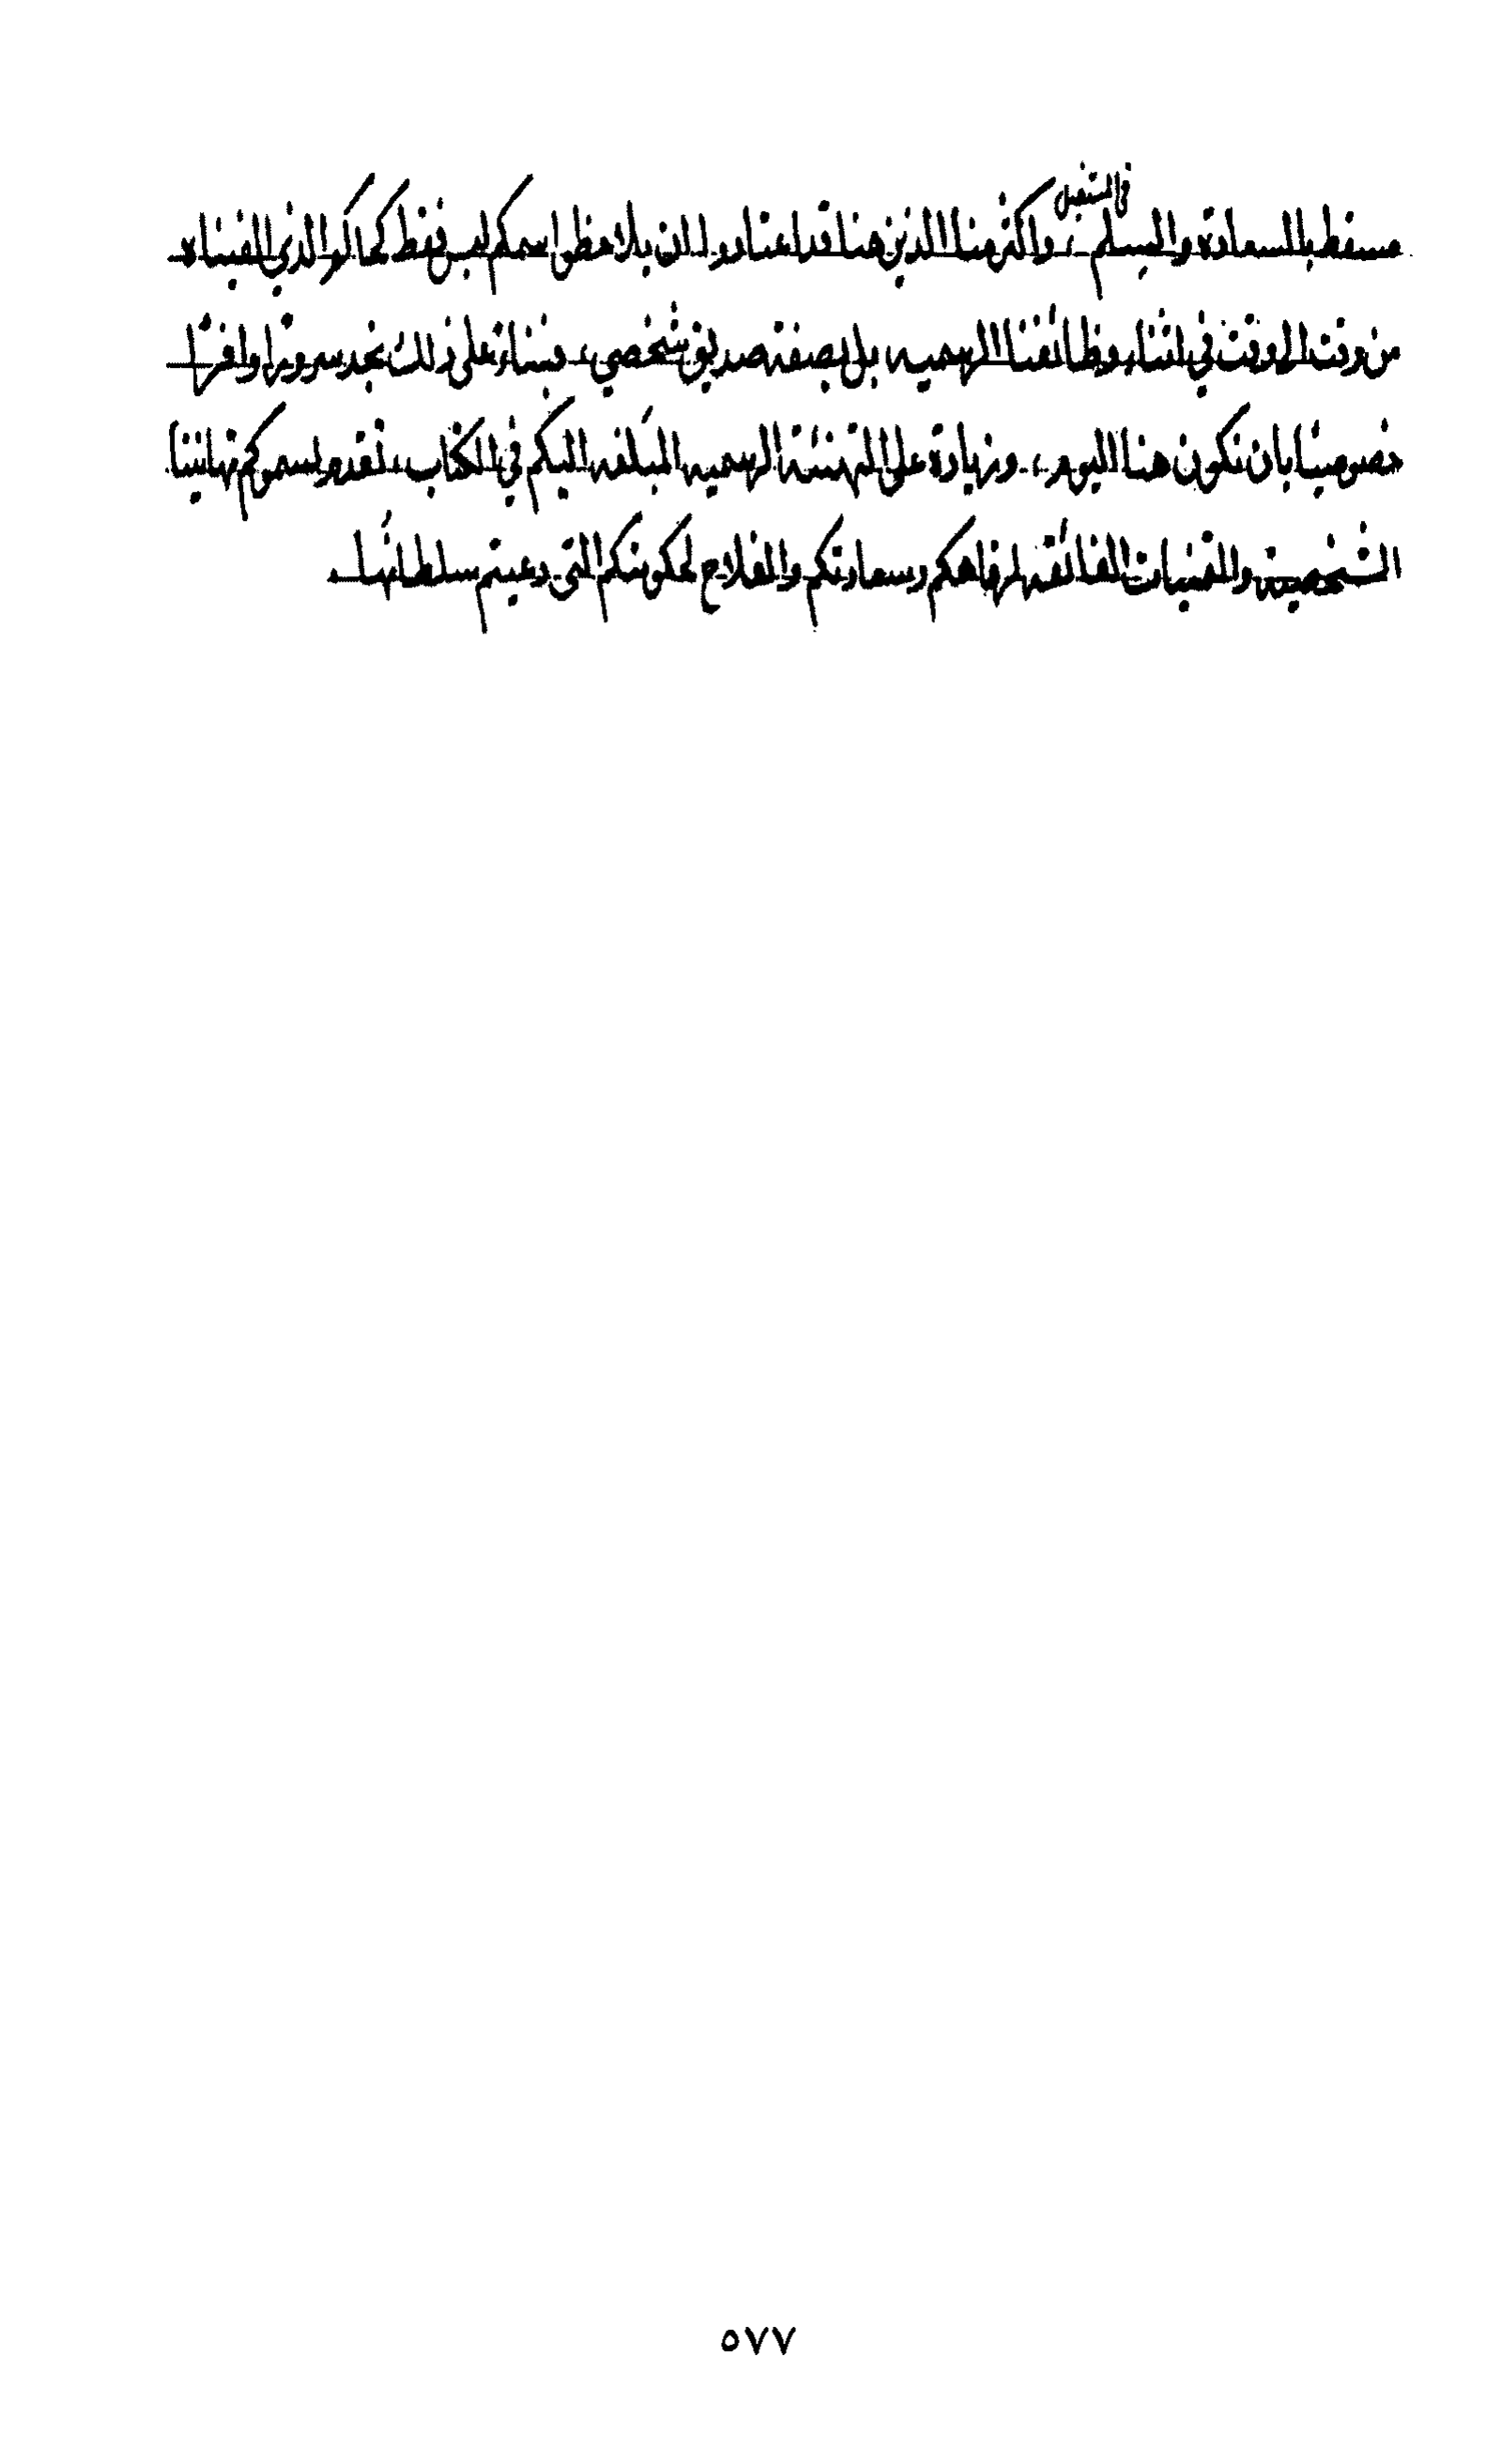 في المستقبل
مسقط بالسعادة والسلم ، واكثر منا الذين هنا قد اعتادوا ان يلاحظوا اسمكم ليس فقط كحاكم الذي القيناه
من وقت الى وقت في اثناء وظائفنا الرسميه ، بل بصفة صديق شخصي ، فبناءً على ذلك نجد سرورًا وافرًا
خصوصيًا بان نكون هنا اليوم ، وزيادة على التهنئة الرسميه المبلغه اليكم في الكتاب ، نقدم لسموكم تهانينا
الشخصية والتمنيات الفائقه لرفاهكم وسعادتكم والفلاح لحكومتكم التي دعيتم سلطانها .
٥٧٧